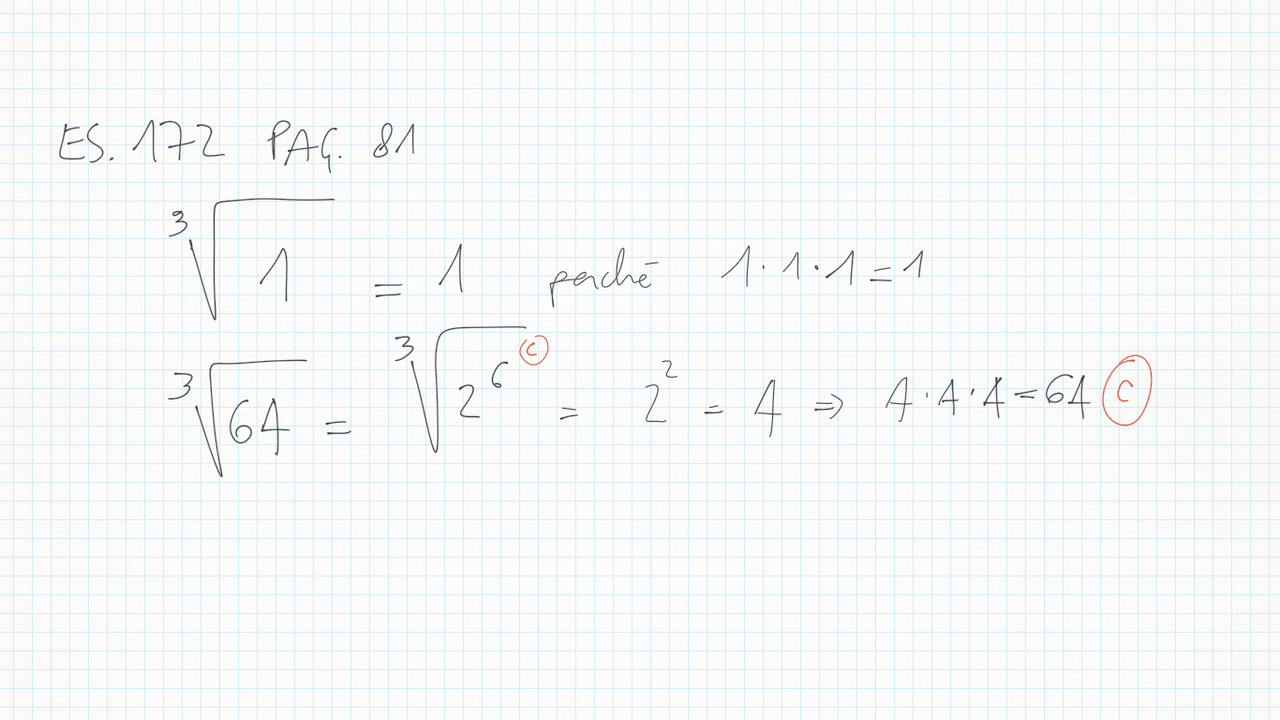 ES. 172 PAG. 81
∛1 = 1 perché 1·1·1=1
∛64 = ∛2⁶ (c) = 2² = 4 ⇒ 4·4·4=64 (c)